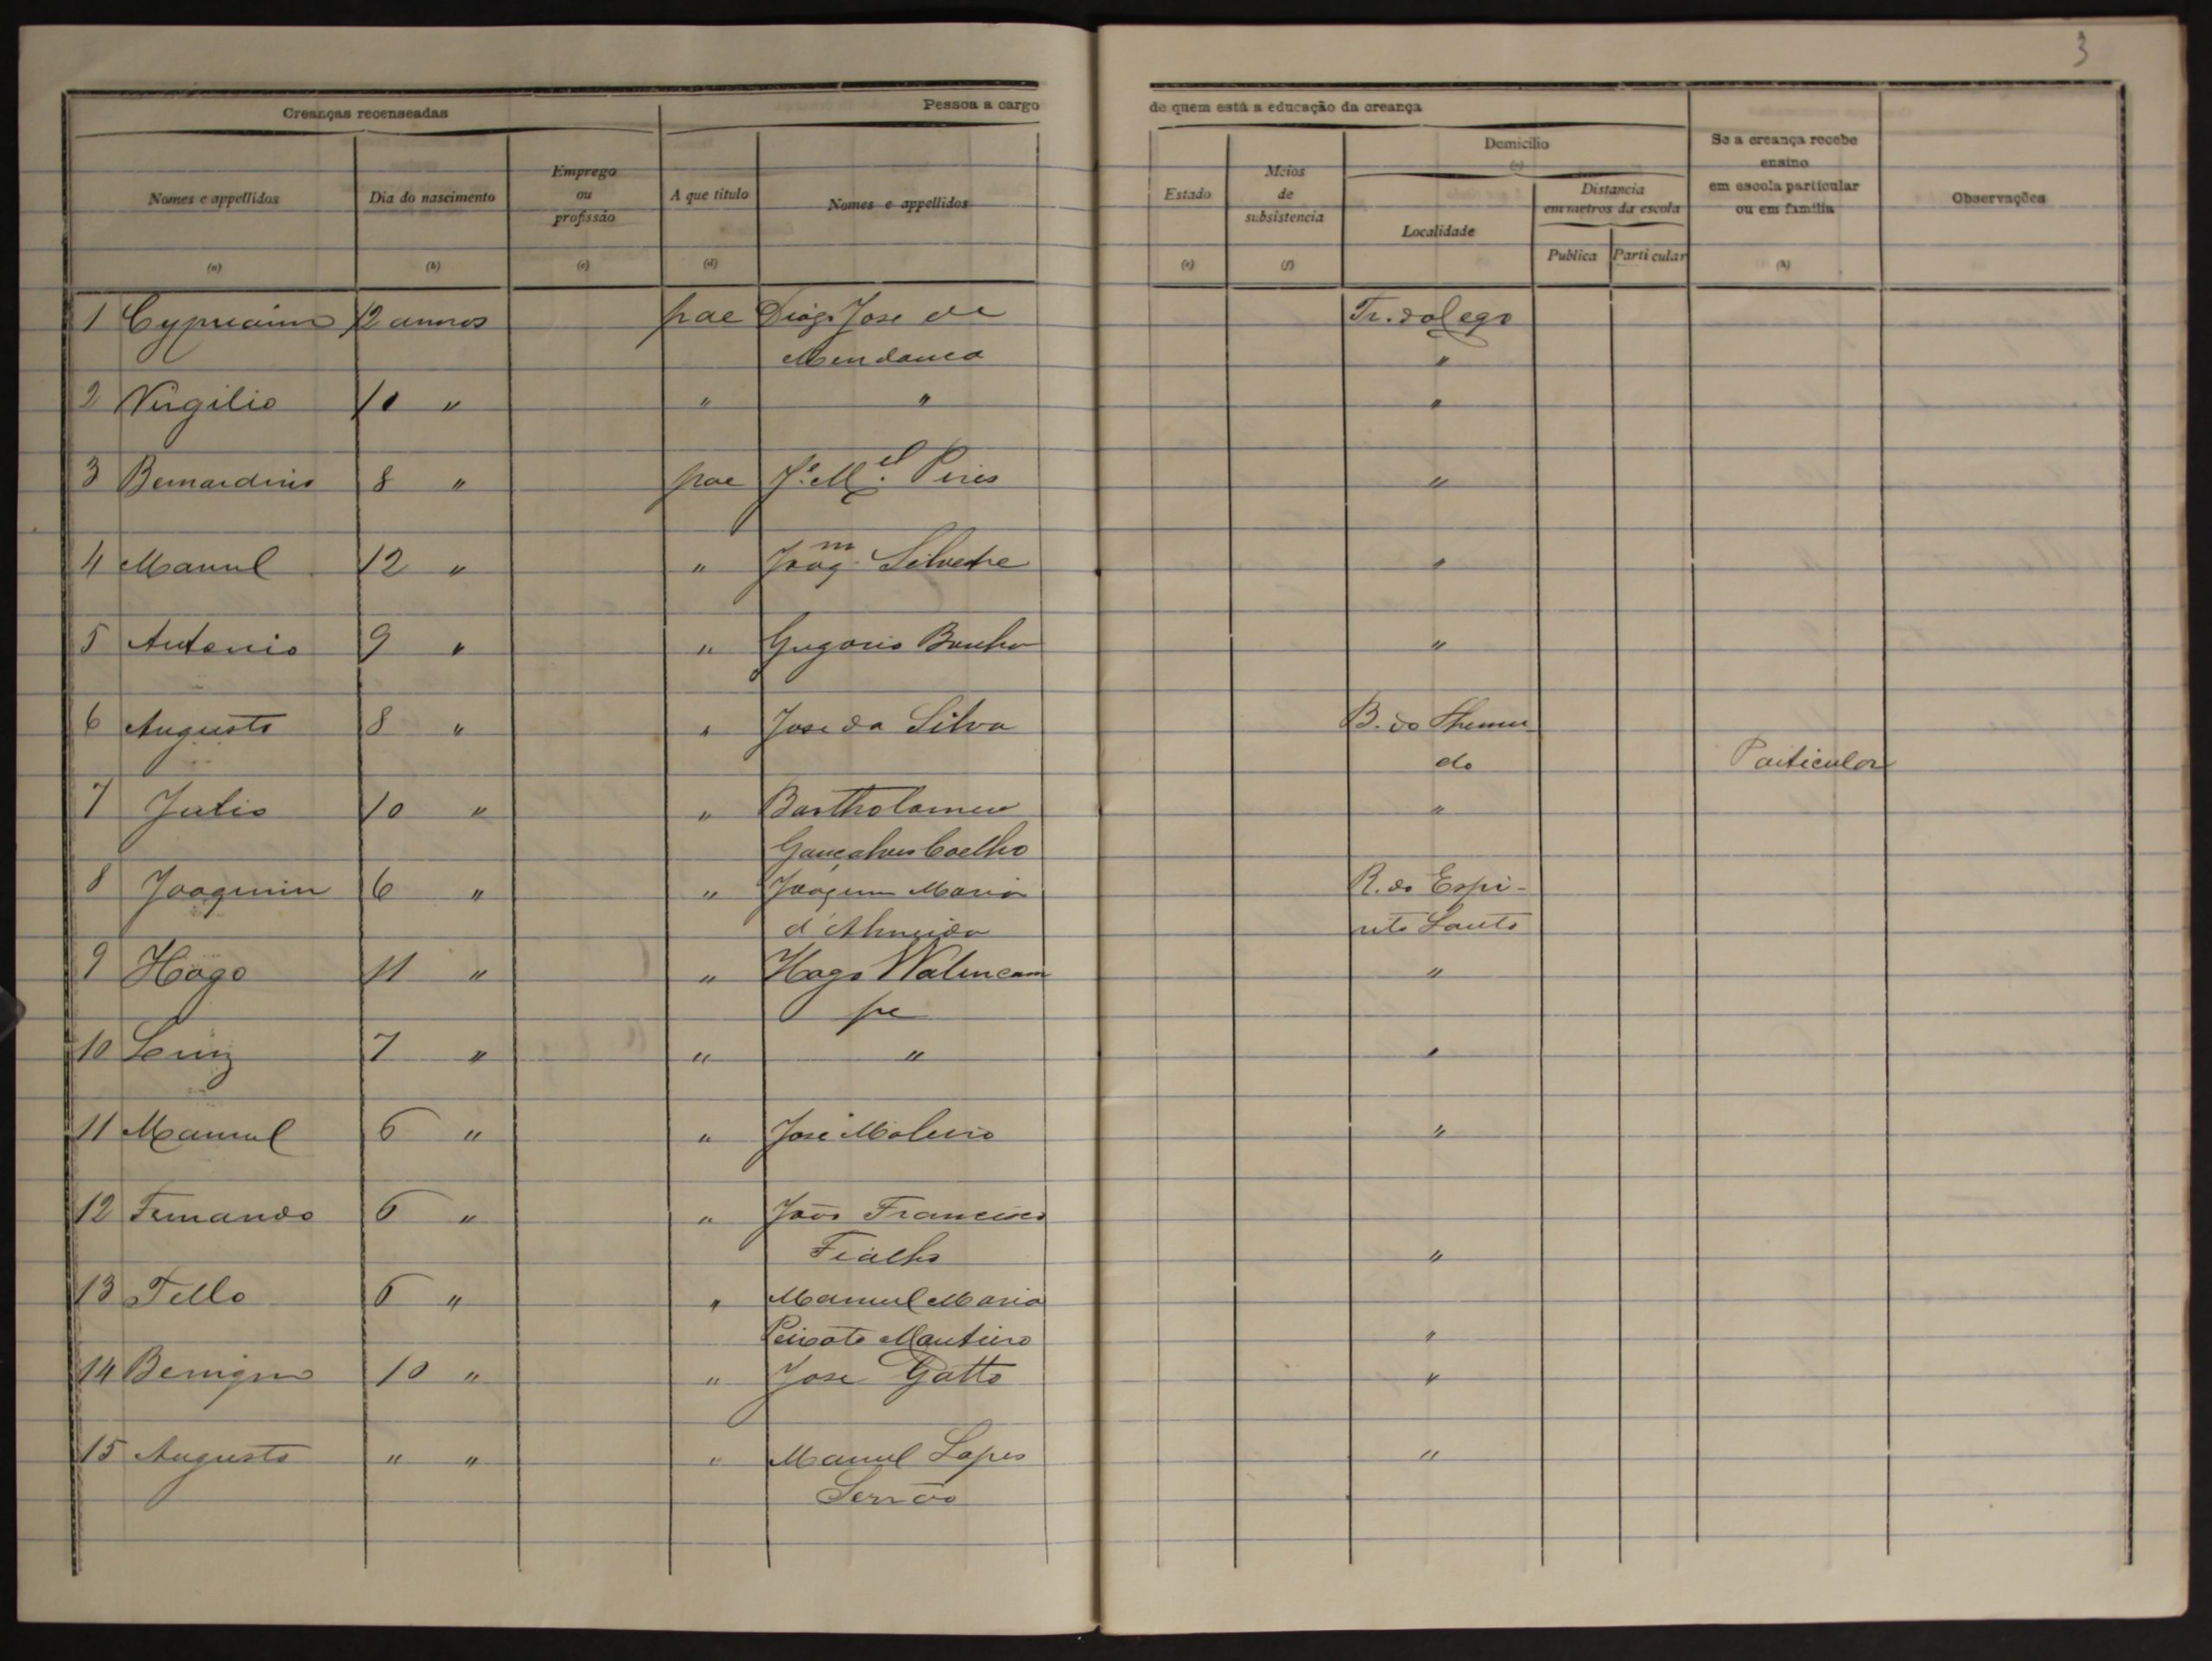 3
Creanças recenseadas
Pessoa a cargo de quem está a educação da creança
Se a creança recebe ensino em escola particular ou em familia
Observações
Nomes e appellidos
Dia do nascimento
Emprego ou profissão
A que titulo
Nomes e appellidos
Estado
Meios de subsistencia
Domicilio
Localidade
Distancia em metros da escola
Publica
Particular
(a) (b) (c) (d) (e) (f) (h)
1 Cypriano 12 annos pae Diogo Jose de Tr. do Cego
Mendanca "
2 Virgilio 10 " " " "
3 Bernardino 8 " pae Jº. M.el Pires "
4 Manuel 12 " " Joaq.m Silvestre "
5 Antonio 9 " " Gregorio "
6 Augusto 8 " " Jose da Silva B. do
do Particular
7 Julio 10 " " Bartholomeu "
Gonçalves Coelho
8 Joaquim 6 " " Joaquim Maria R. do Espi-
d'Almeida rito Santo
9 Hogo 11 " " Hogo "
pe
10 7 " " " "
11 Manuel 6 " " José "
12 Fernando 6 " " João Francisco
Fialho "
13 Tello 6 " " Manuel Maria
Peixoto "
14 Benigno 10 " " Jose Gatto "
15 Augusto " " " Manuel Lopes "
Serrão